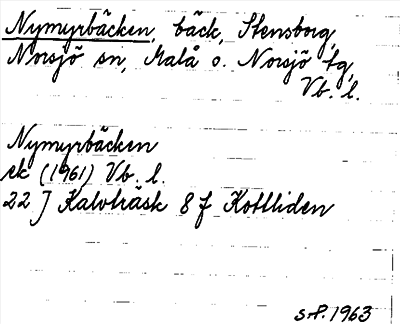 Nymyrbäcken, bäck, Stensborg,
Norsjö sn, Malå o. Norsjö tg,
Vb. l.
Nymyrbäcken
ek (1961) Vb. l.
22 J Kalvträsk 8 f Kottliden
1963